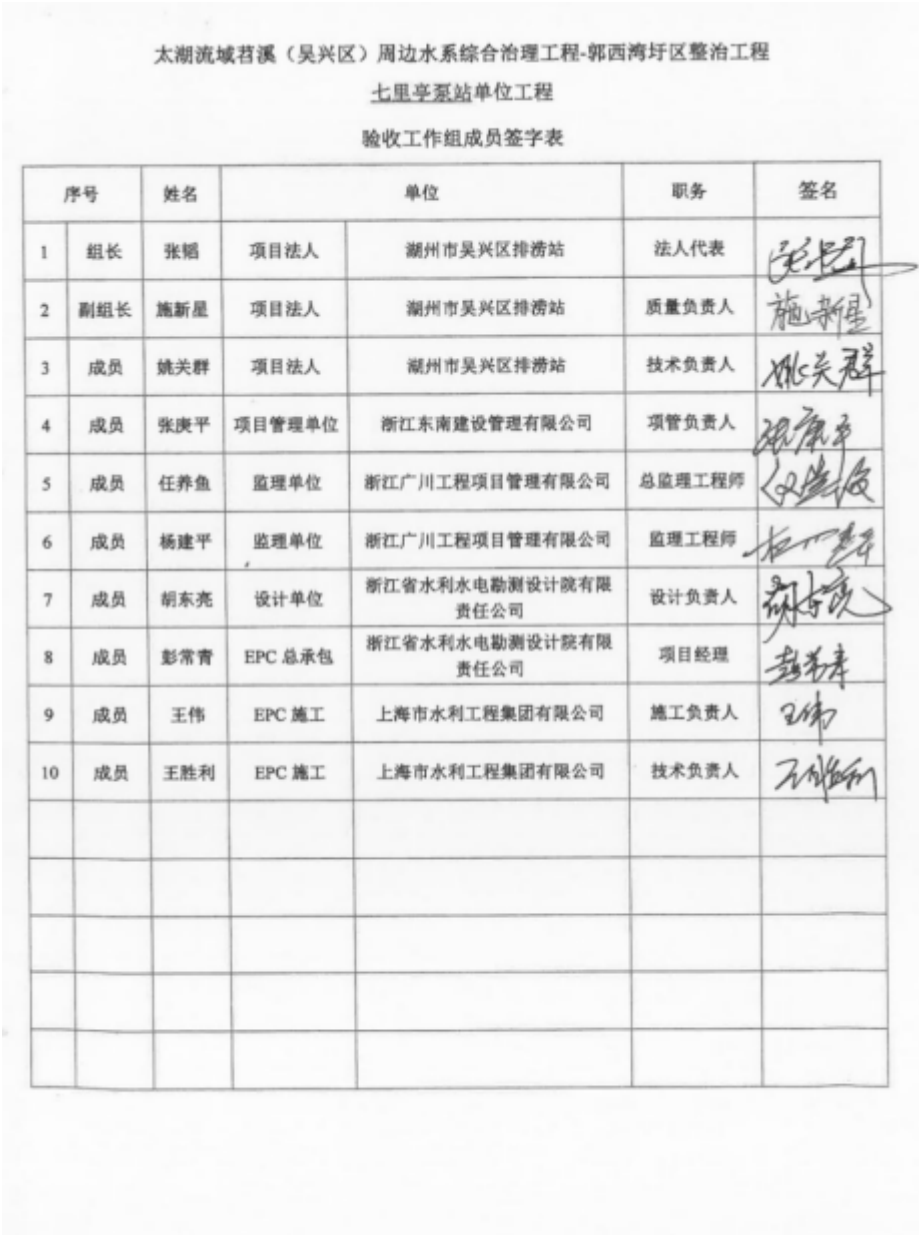 太湖流域苕溪（吴兴区）周边水系综合治理工程-郭西湾圩区整治工程
七里亭泵站单位工程
验收工作组成员签字表
序号 姓名 单位 职务 签名
1 组长 张韬 项目法人 湖州市吴兴区排涝站 法人代表
2 副组长 施新星 项目法人 湖州市吴兴区排涝站 质量负责人 施新星
3 成员 姚关群 项目法人 湖州市吴兴区排涝站 技术负责人 姚关群
4 成员 张庚平 项目管理单位 浙江东南建设管理有限公司 项管负责人
5 成员 任养鱼 监理单位 浙江广川工程项目管理有限公司 总监理工程师
6 成员 杨建平 监理单位 浙江广川工程项目管理有限公司 监理工程师
7 成员 胡东亮 设计单位 浙江省水利水电勘测设计院有限
责任公司 设计负责人 胡东亮
8 成员 彭常青 EPC 总承包 浙江省水利水电勘测设计院有限
责任公司 项目经理 彭常青
9 成员 王伟 EPC 施工 上海市水利工程集团有限公司 施工负责人 王伟
10 成员 王胜利 EPC 施工 上海市水利工程集团有限公司 技术负责人 王胜利